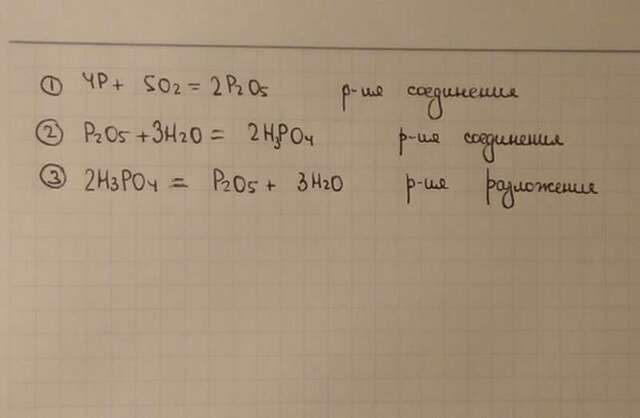 ① 4P + 5O₂ = 2P₂O₅ р-ия соединения
② P₂O₅ + 3H₂O = 2H₃PO₄ р-ия соединения
③ 2H₃PO₄ = P₂O₅ + 3H₂O р-ия разложения